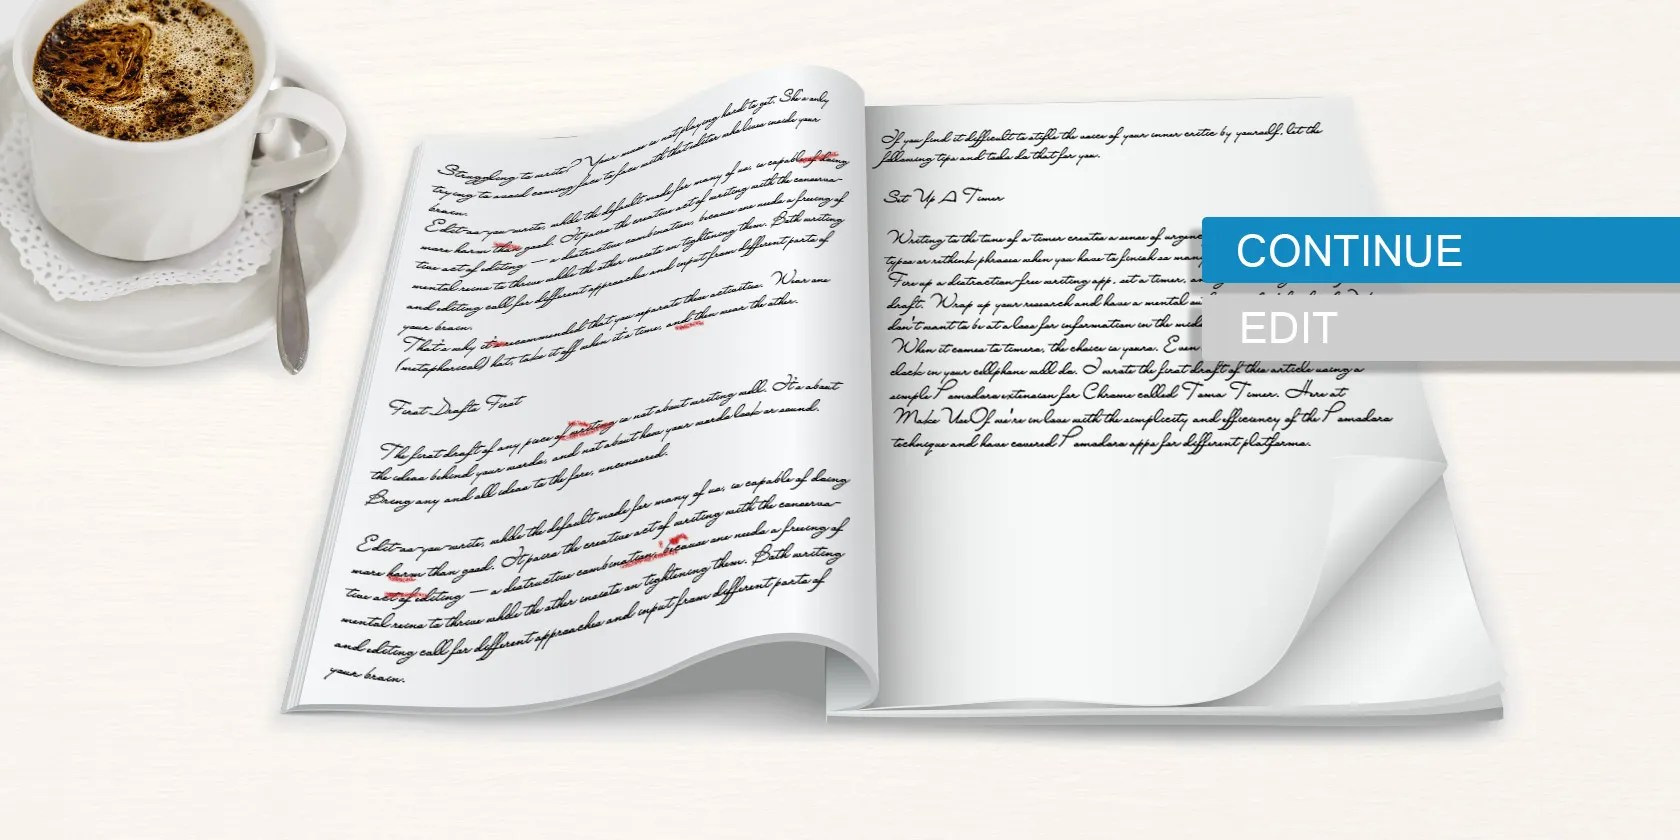 Struggling to write? Your muse is not playing hard to get. She's only
trying to avoid coming face to face with that editor who lives inside your
brain.
Edit-as-you-write, while the default mode for many of us, is capable of doing
more harm than good. It pairs the creative act of writing with the conserva-
tive act of editing — a destructive combination, because one needs a freeing of
mental reins to thrive while the other insists on tightening them. Both writing
and editing call for different approaches and input from different parts of
your brain.
That's why it's recommended that you separate these activities. Wear one
(metaphorical) hat, take it off when it's time, and then wear the other.
First Drafts First
The first draft of any piece of writing is not about writing well. It's about
the ideas behind your words, and not about how your words look or sound.
Bring any and all ideas to the fore, uncensored.
Edit-as-you-write, while the default mode for many of us, is capable of doing
more harm than good. It pairs the creative act of writing with the conserva-
tive act of editing — a destructive combination, because one needs a freeing of
mental reins to thrive while the other insists on tightening them. Both writing
and editing call for different approaches and input from different parts of
your brain.
If you find it difficult to stifle the voice of your inner critic by yourself, let the
following tips and tools do that for you.
Set Up A Timer
Writing to the tune of a timer creates a sense of
typos or rethink phrases when you have to finish as
Fire up a distraction-free writing app, set a timer,
draft. Wrap up your research and have a mental
don't want to be at a loss for information in the
When it comes to timers, the choice is yours.
clock in your cellphone will do. I wrote the first draft of this article using a
simple Pomodoro extension for Chrome called Toma Timer. Here at
MakeUseOf we're in love with the simplicity and efficiency of the Pomodoro
technique and have covered Pomodoro apps for different platforms.
CONTINUE
EDIT